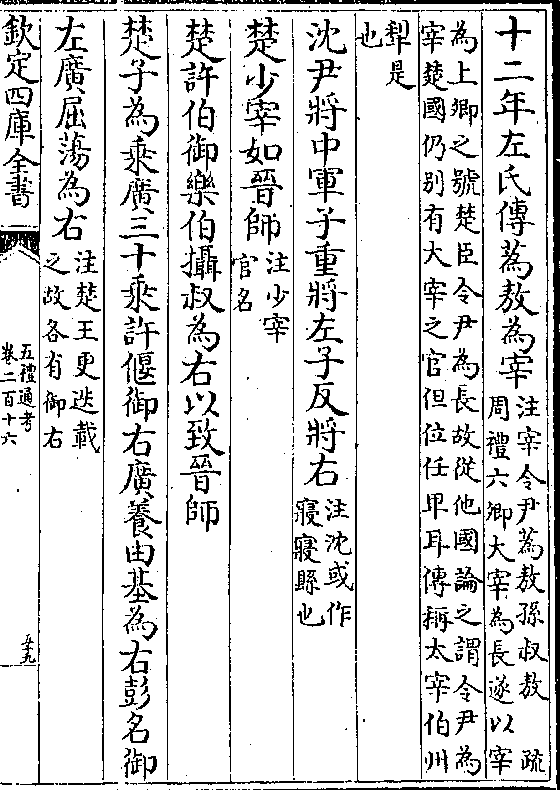 十二年左氏傳蒍敖為宰注宰令尹蒍敖孫叔敖　疏
周禮六卿大宰為長遂以宰
為上卿之號楚臣令尹為長故從他國論之謂令尹為
宰楚國仍别有大宰之官但位任卑耳傳稱太宰伯州
犁是
也
沈尹將中軍子重將左子反將右注沈或作
寢寢縣也
楚少宰如晉師注少宰
官名
楚許伯御樂伯攝叔為右以致晉師
楚子為乘廣三十乘許偃御右廣養由基為右彭名御
左廣屈蕩為右注楚王更迭載
之故各有御右
欽定四庫全書
五禮通考
卷二百十六
五九